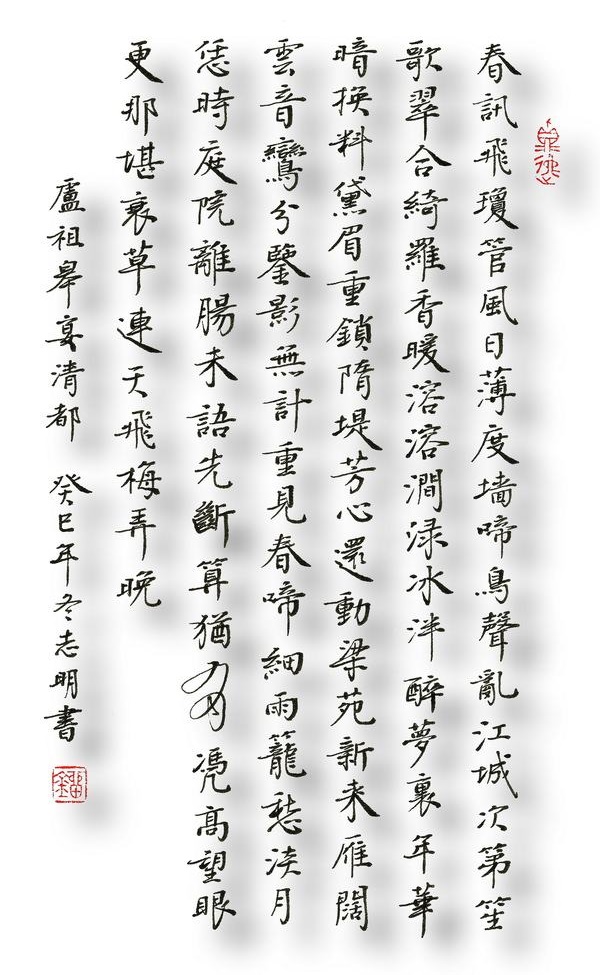 春訊飛瓊管風日薄度墻啼鳥聲亂江城次第笙
歌翠合綺羅香暖溶溶澗渌冰泮醉夢裏年華
暗換料黛眉重鎖隋堤芳心還動梁苑新来雁闊
雲音鸞分鑒影無計重見春啼細雨籠愁淡月
恁時庭院離腸未語先斷算猶有凴高望眼
更那堪衰草連天飛梅弄晚
盧祖皋宴清都 癸巳年冬志明書